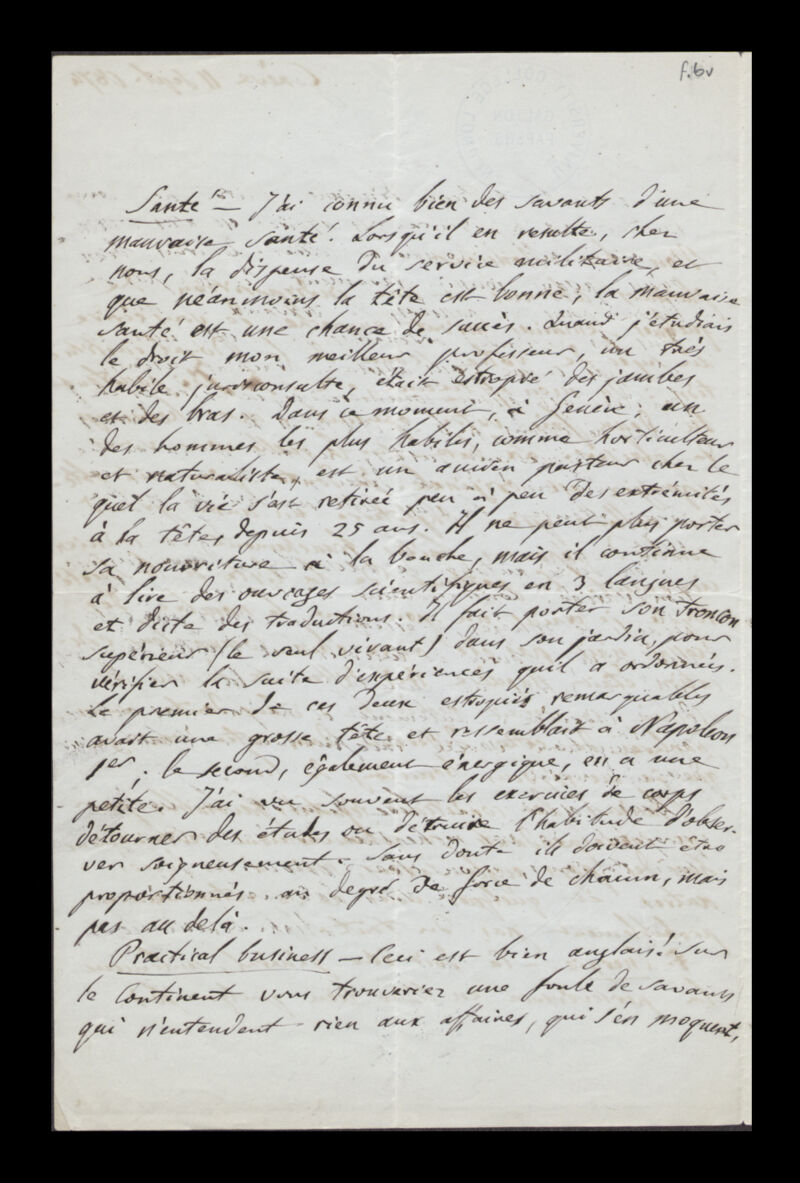 f.6v
Santé — J'ai connu bien des savants d'une
mauvaise santé. Lorsqu'il en resulte, chez
nous, la dispense du service militaire, et
que néanmoins la tête est bonne, la mauvaise
santé est une chance de succès. Quand j'étudiais
le droit mon meilleur professeur, un très
habile jurisconsulte, était estropié des jambes
et des bras. Dans ce moment, à Genève, un
des hommes les plus habiles, comme horticulteur
et naturaliste, est un ancien pasteur chez le
quel la vie s'est retirée peu à peu des extrémités
à la têtes depuis 25 ans. Il ne peut plus porter
sa nourriture à la bouche, mais il continue
à lire des ouvrages scientifiques en 3 langues
et dicte des traductions. Il fait porter son tronçon
supérieur (le seul vivant) dans son jardin, pour
vérifier la suite d'expériences qu'il a ordonnées.
Le premier de ces deux estropiés remarquables
avait une grosse tête et ressemblait à Napoleon
1er; le second, également énergique, en a une
petite. J'ai vu souvent les exercices de corps
détourner des études ou détruire l'habitude d'obser-
ver soigneusement. Sans doute ils doivent être
proportionnés au degré de force de chacun, mais
pas au delà.
Practical business — Ceci est bien anglais! Sur
le Continent vous trouveriez une foule de savants
qui n'entendent rien aux affaires, qui s'en moquent,